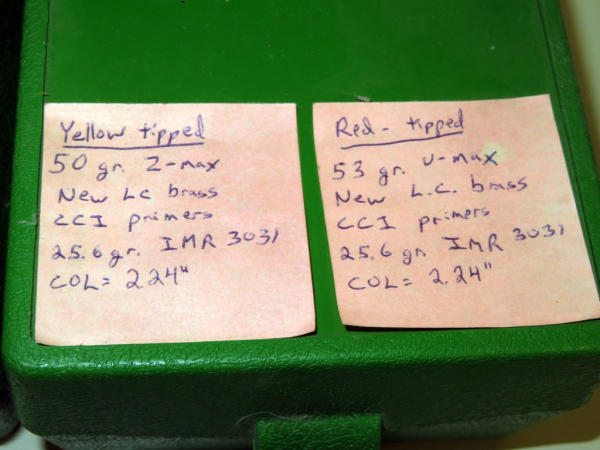 Yellow tipped
50 gr. Z-max
New LC brass
CCI primers
25.6 gr. IMR 3031
COL= 2.24"
Red-tipped
53 gr. V-max
New L.C. brass
CCI primers
25.6 gr. IMR 3031
COL= 2.24"